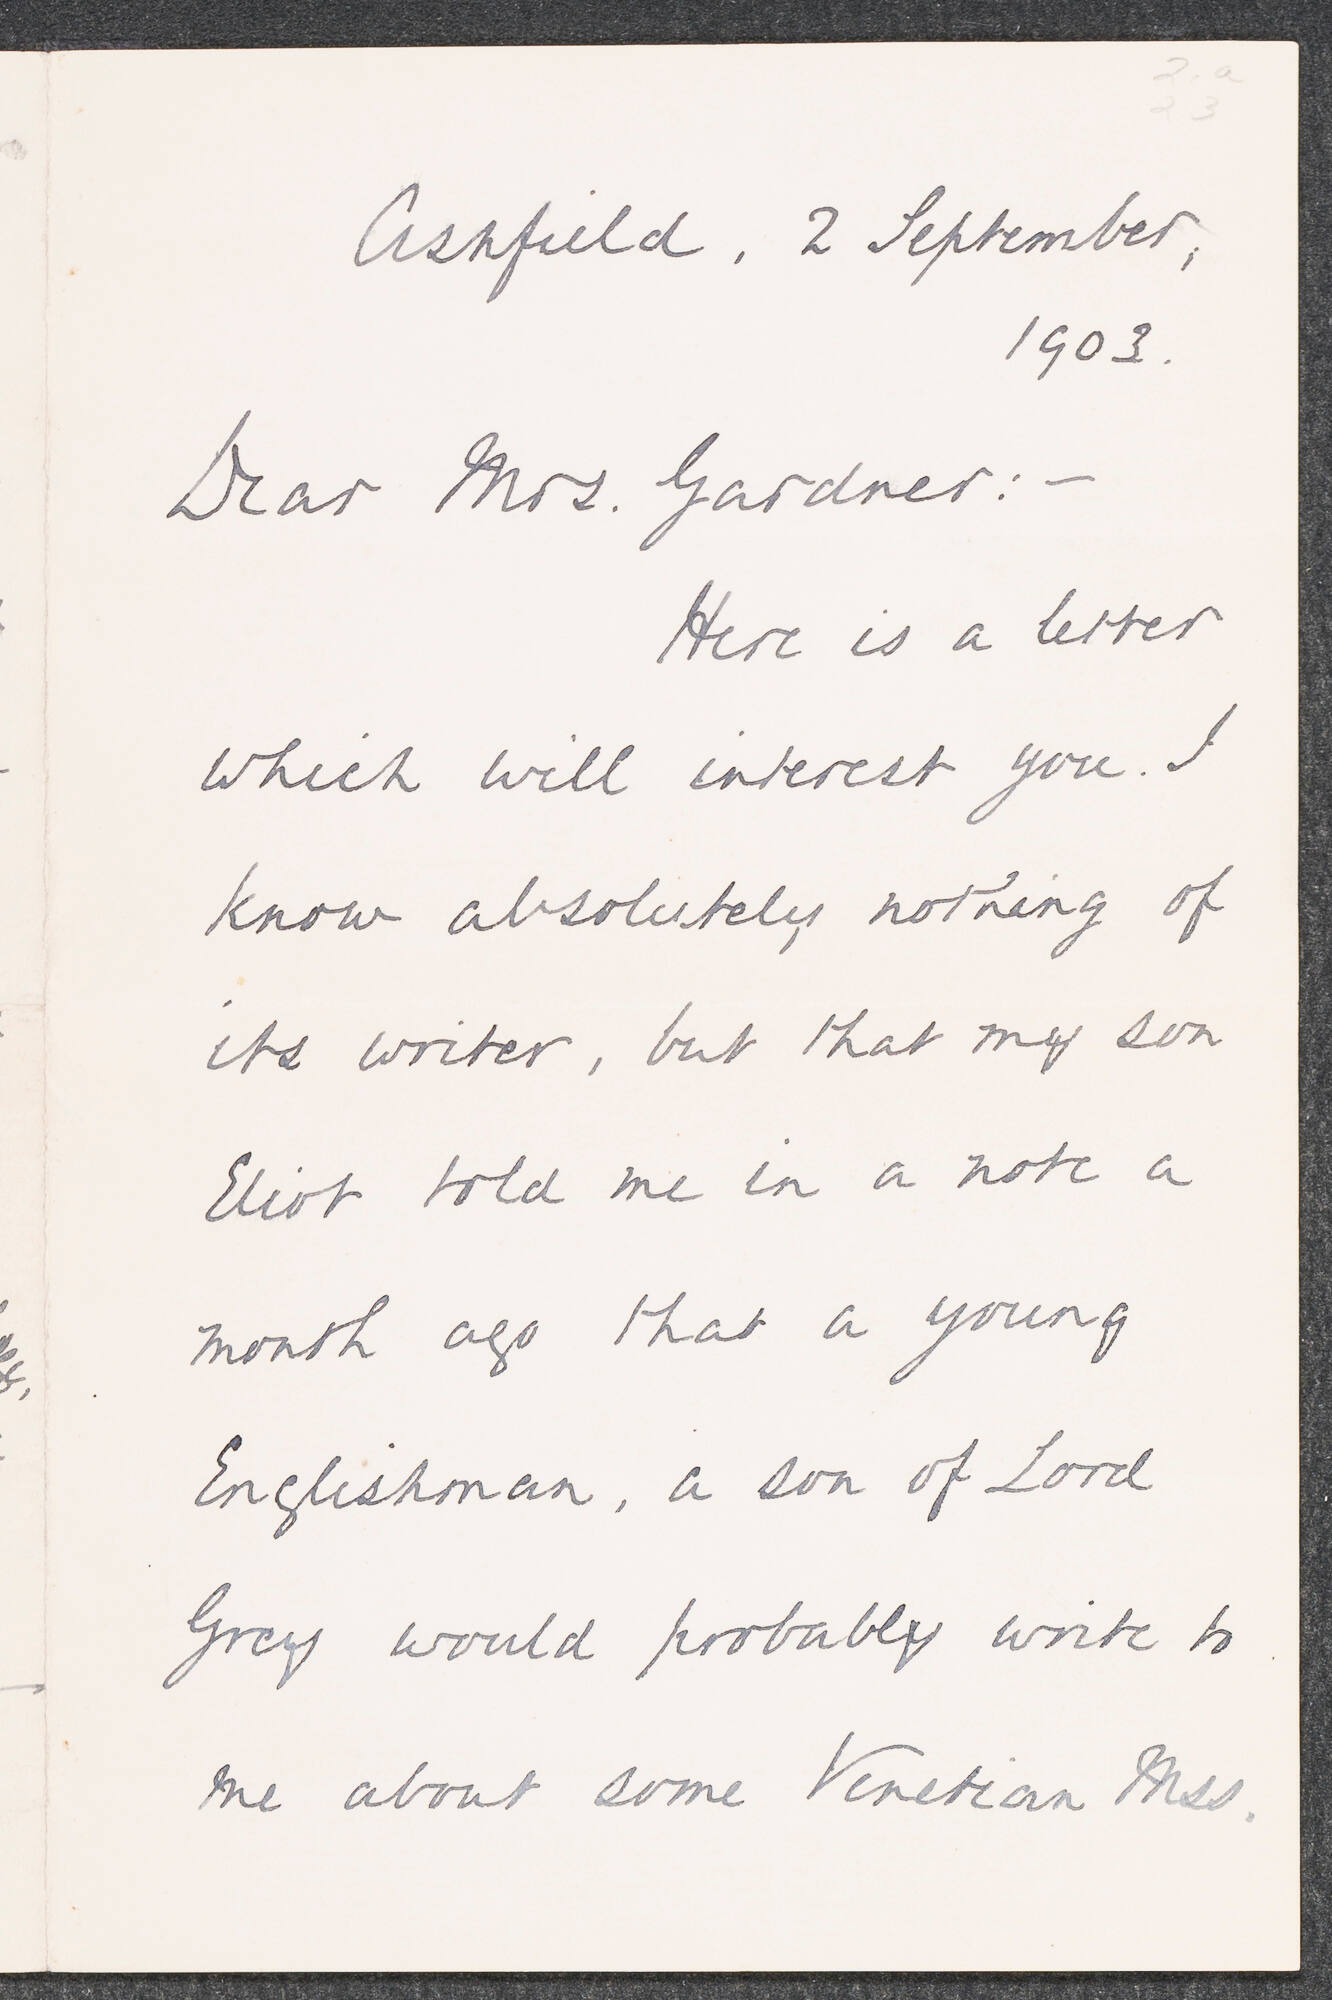 2.a
23
Ashfield, 2 September,
1903.
Dear Mrs. Gardner:—
Here is a letter
which will interest you. I
know absolutely nothing of
its writer, but that my son
Eliot told me in a note a
month ago that a young
Englishman, a son of Lord
Grey would probably write to
me about some Venetian Mss.